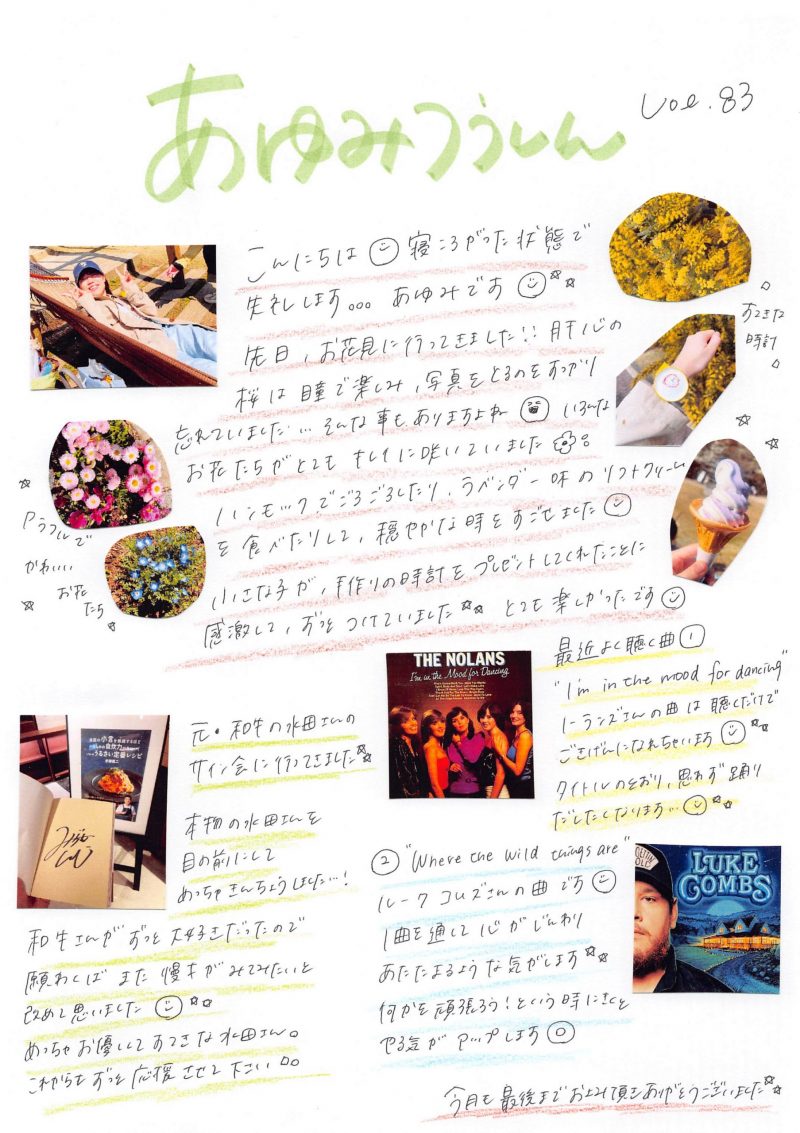 あゆみつうしん
Vol.83
こんにちは 寝ころがった状態で
失礼します… あゆみです
先日、お花見に行ってきました!! 肝心の
桜は瞳で楽しみ、写真をとるのをすっかり
忘れていました… そんな事もありますよね いろんな
お花たちがとてもキレイに咲いていました
ハンモックでごろごろしたり、ラベンダー味のソフトクリーム
を食べたりして、穏やかな時をすごせました
小さな子が、手作りの時計をプレゼントしてくれたことに
感激して、ずっとつけていました とても楽しかったです
すてきな
時計
カラフルで
かわいい
お花
たち
元・和牛の水田さんの
サイン会に行ってきました
本物の水田さんを
目の前にして
めっちゃきんちょうしました…!
和牛さんがずっと大好きだったので
願わくばまた漫才がみてみたいと
改めて思いました
めっちゃお優しくてすてきな水田さん。
これからもずっと応援させて下さい
THE NOLANS
I'm in the Mood for Dancing
最近よく聴く曲①
"I'm in the mood for dancing"
ノーランズさんの曲は聴くだけで
ごきげんになれちゃいます
タイトルのとおり、思わず踊り
だしたくなります…
② "Where the wild things are"
ルークコムズさんの曲です
1曲を通して心がじんわり
あたたまるような気がします
何かを頑張ろう!という時にきくと
やる気がアップします
LUKE
COMBS
今月も最後までお読み頂きありがとうございました